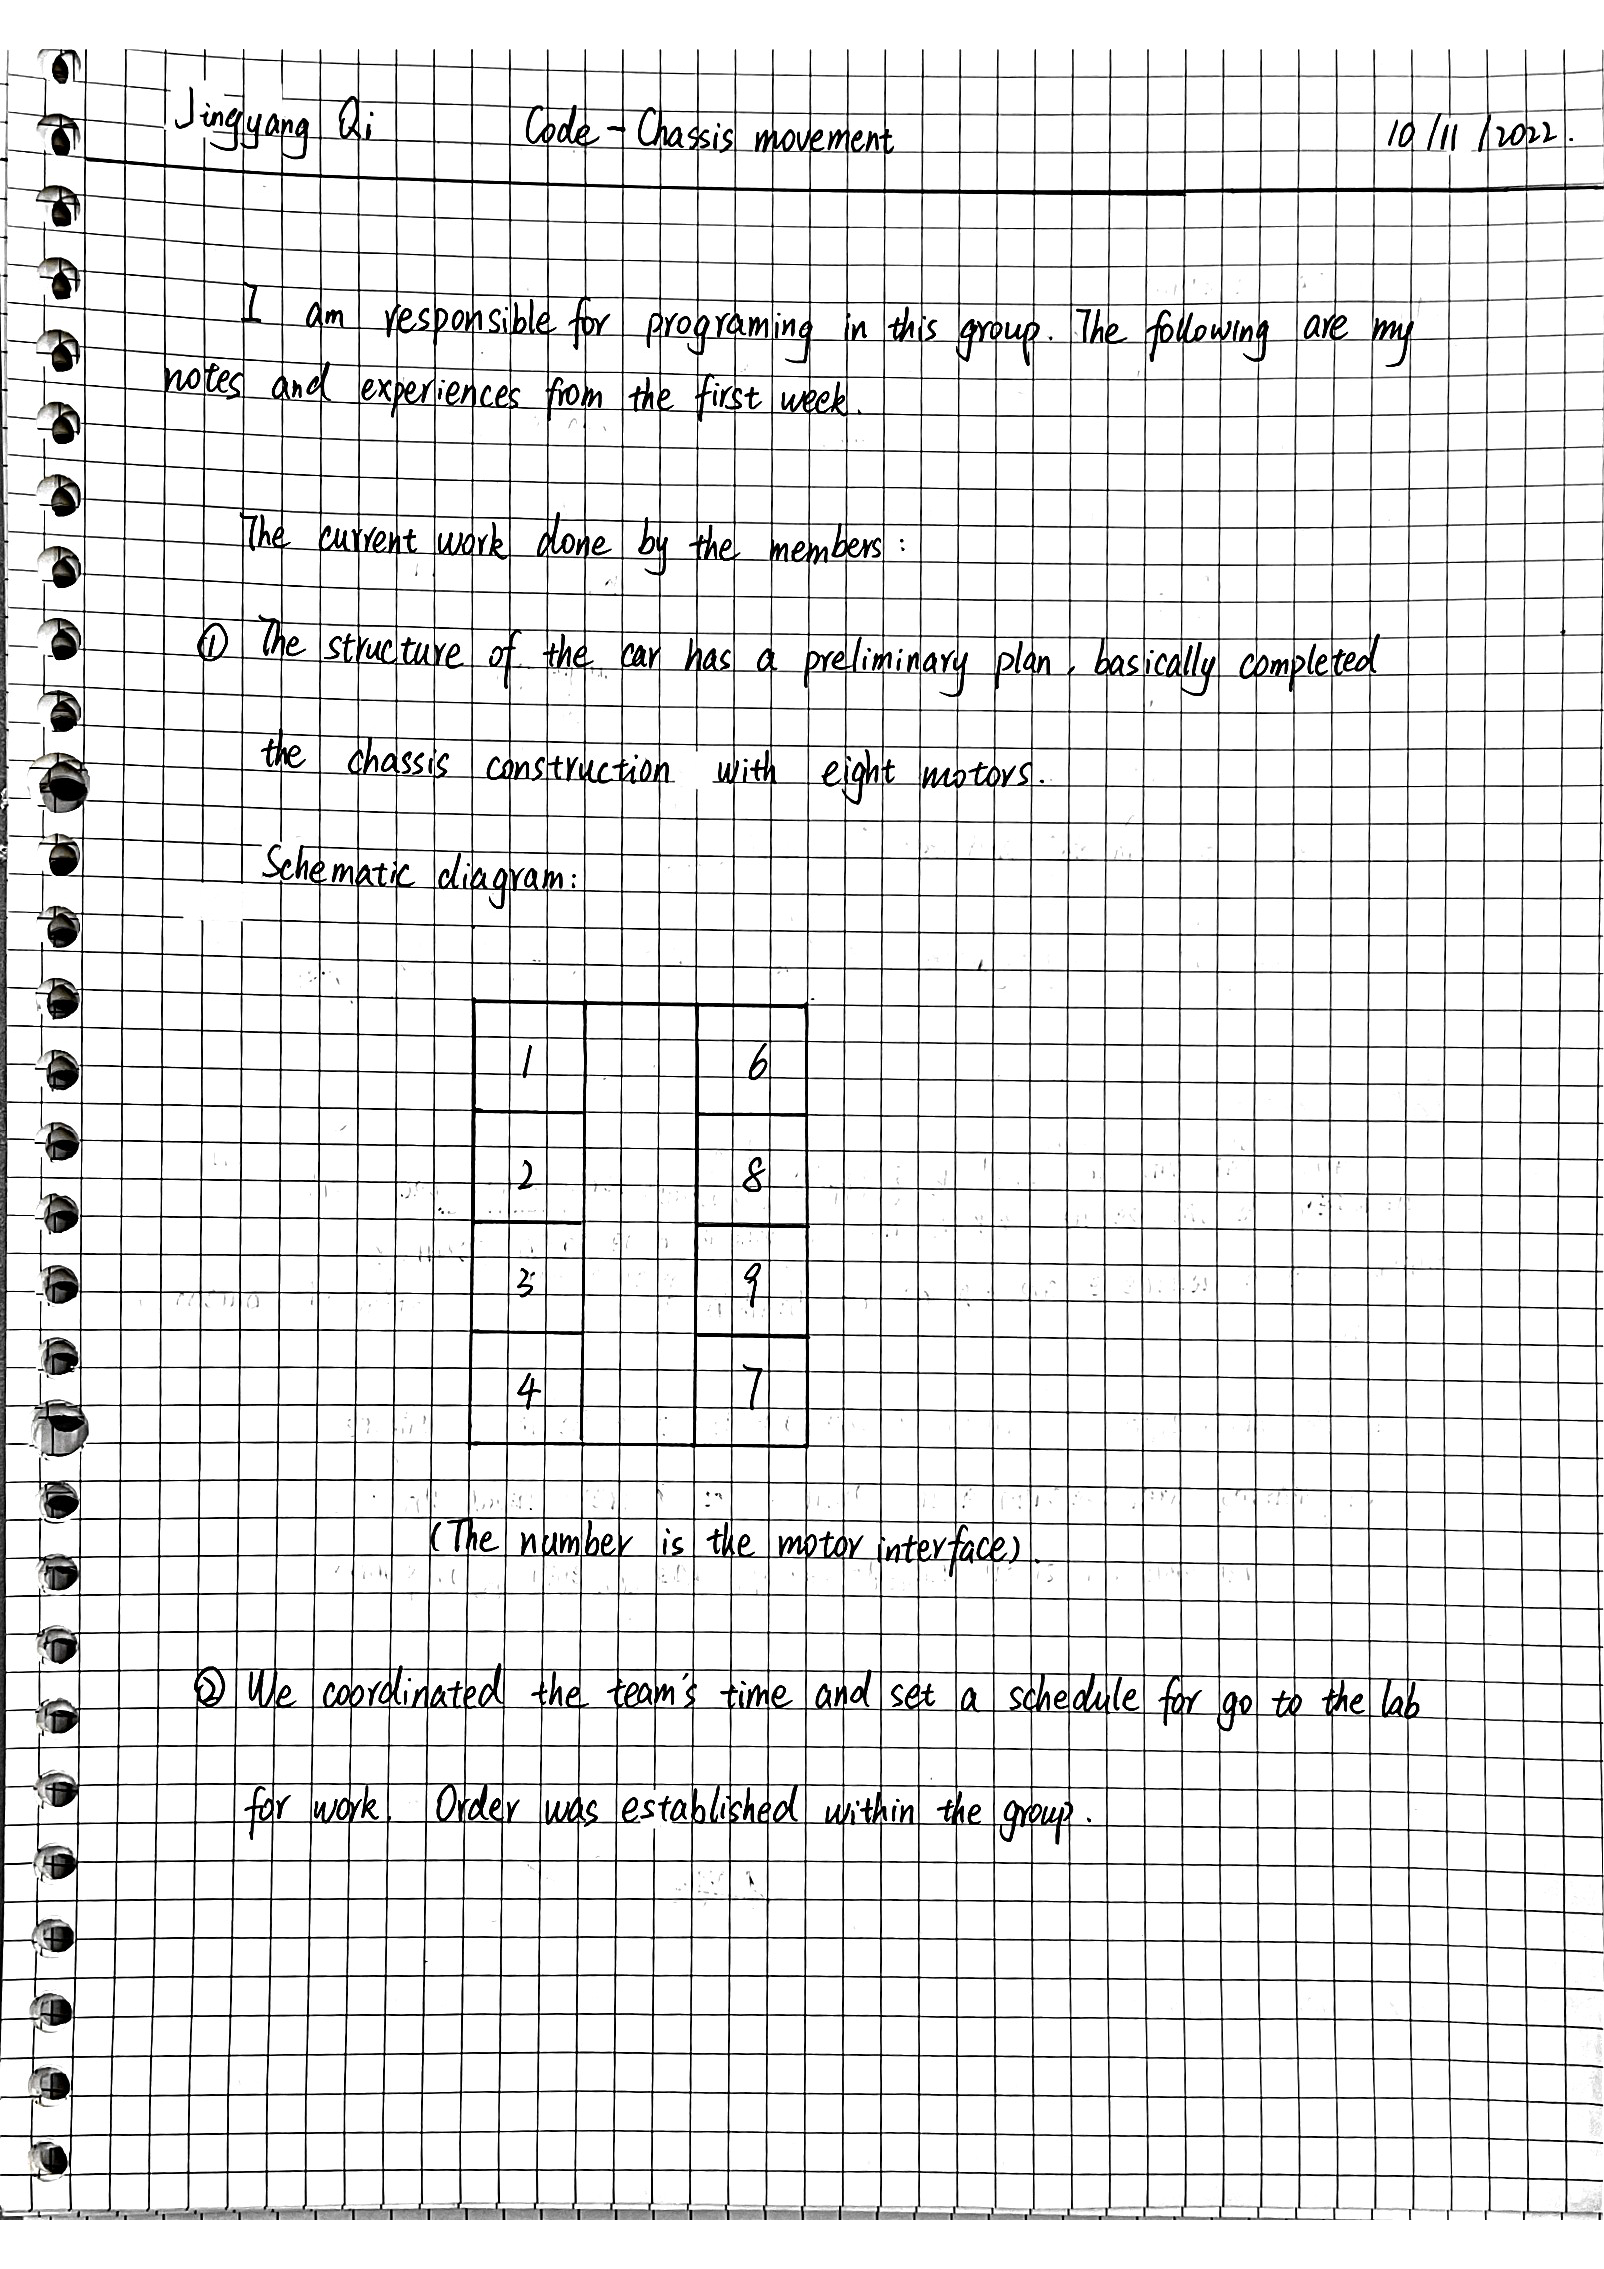 Jingyang Qi Code - Chassis movement 10/11/2022.
I am responsible for programing in this group. The following are my
notes and experiences from the first week.
The current work done by the members:
① The structure of the car has a preliminary plan, basically completed
the chassis construction with eight motors.
Schematic diagram:
1 6
2 8
3 9
4 7
(The number is the motor interface).
② We coordinated the team's time and set a schedule for go to the lab
for work. Order was established within the group.